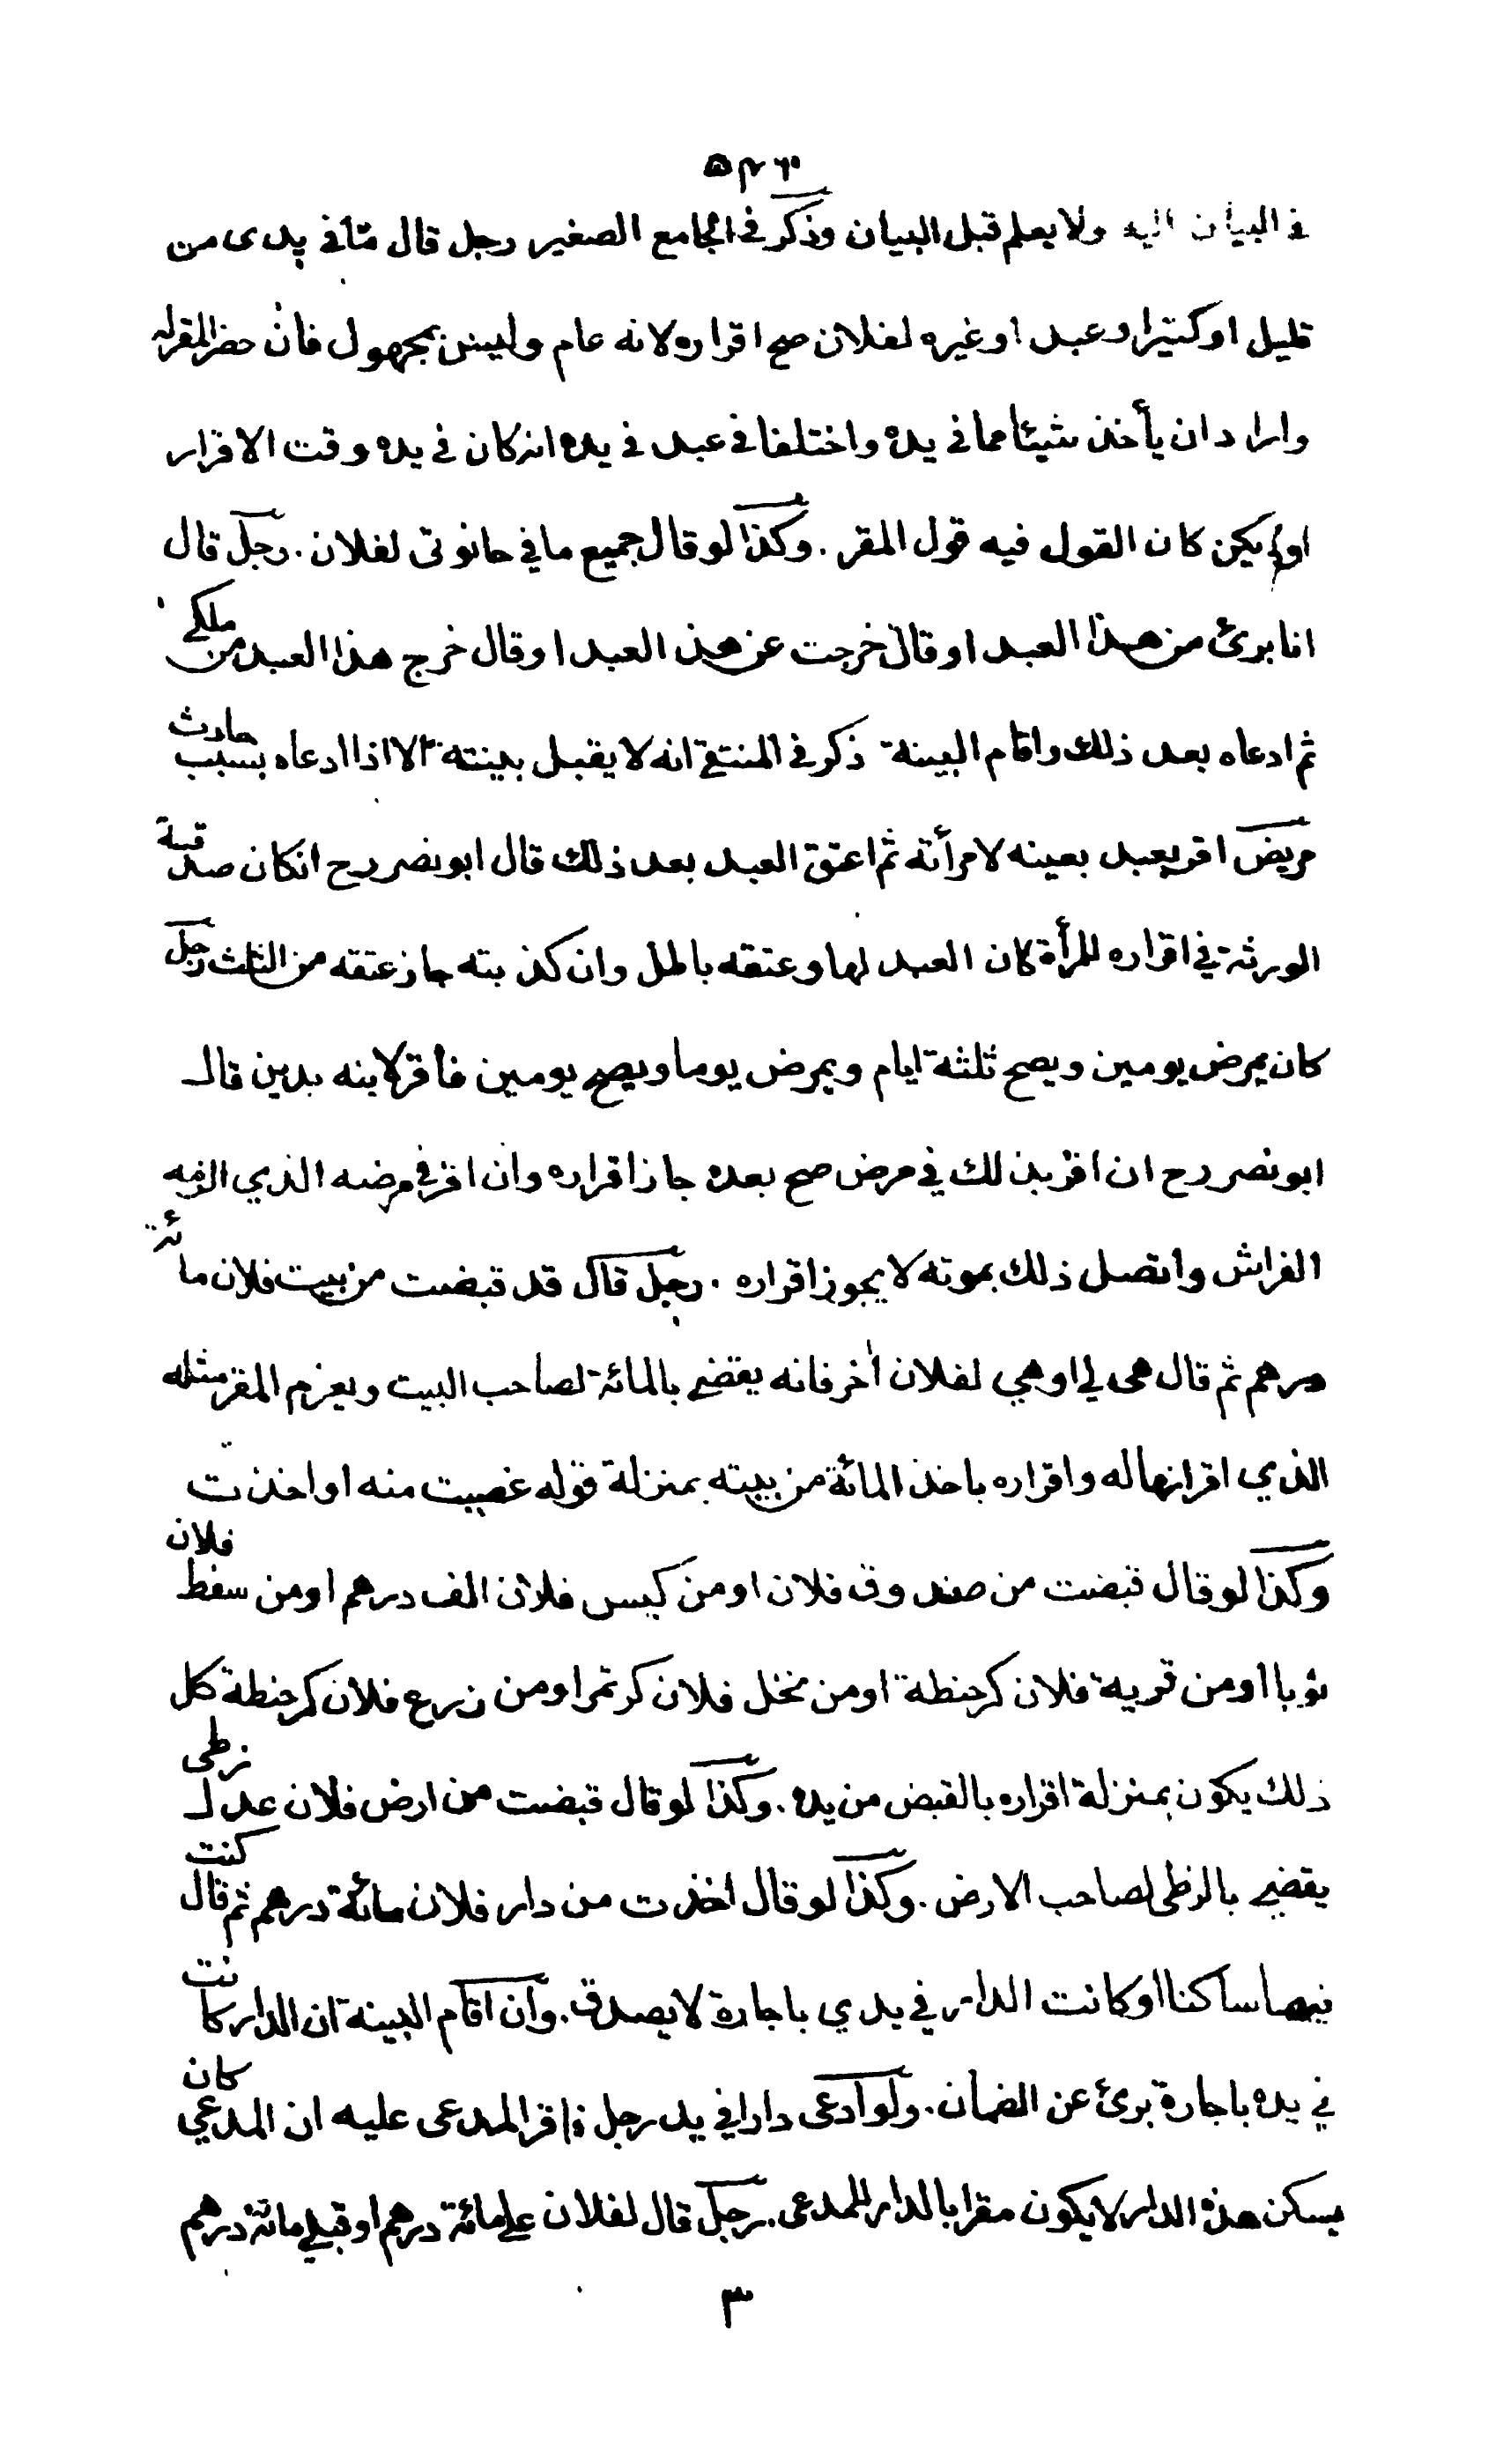 في البيان اليه ولا يعلم قبل البيان وذكر في الجامع الصغير رجل قال ما في يدى من
قليل او كثير او عبد او غيره لفلان صح اقراره لانه عام وليس بمجهول فان حضر المقر له
واراد ان يأخذ شيئا مما في يده واختلفا في عبد في يده انه كان في يده وقت الاقرار
اولم يكن كان القول فيه قول المقر . وكذا لو قال جميع ما في حانوتى لفلان . رجل قال
انا برئ من هذا العبد او قال خرجت عن هذ العبد او قال خرج هذا العبد من ملكي
ثم ادعاه بعد ذلك واقام البينة ذكر في المنتقى انه لا يقبل بينته الا اذا ادعاه بسبب حادث
مريض اقر بعبد بعينه لامرأته ثم اعتق العبد بعد ذلك قال ابو نصر رح انكان صدقته
الورثة في اقراره للمرأة كان العبد لها وعتقه باطل وان كذبته جاز عتقه من الثلث رجل
كان يمرض يومين ويصح ثلثة ايام ويمرض يوما ويصح يومين فأقر لابنه بدين قال
ابو نصر رح ان اقر بذلك في مرض صح بعده جاز اقراره وان اقر في مرضه الذي الزمه
الفراش واتصل ذلك بموته لا يجوز اقراره . رجل قال قد قبضت من بيت فلان مائة
درهم ثم قال هى لي او هي لفلان أخر فانه يقضي بالمائة لصاحب البيت ويغرم المقر مثله
الذي اقر انها له واقراره باخذ المائة من بيته بمنزلة قوله غصبت منه او اخذت
وكذا لو قال قبضت من صندوق فلان او من كيس فلان الف درهم او من سفط فلان
ثوبا او من قرية فلان كر حنطة او من نخل فلان كر تمر او من زرع فلان كر حنطة كل
ذلك يكون بمنزلة اقراره بالقبض من يده . وكذا لو قال قبضت من ارض فلان عدل زطى
يقضي بالزطى لصاحب الارض . وكذا لو قال اخذت من دار فلان مائة درهم ثم قال كنت
فيها ساكنا او كانت الدار في يدي باجارة لا يصدق . وان اقام البينة ان الدار كانت
في يده باجارة برئ عن الضمان . ولو ادعى دارا في يد رجل فاقر المدعى عليه ان المدعي كان
يسكن هذه الدار لا يكون مقرا بالدار للمدعى . رجل قال لفلان علي مائة درهم او قبلي مائة درهم
٣